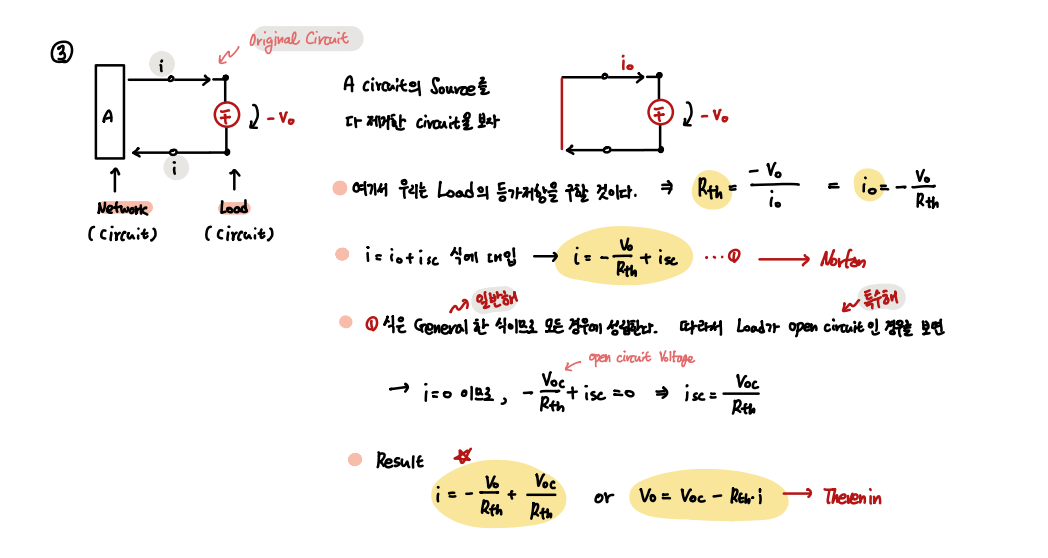 ③
Original Circuit
i
A
- Vo
i
Network
(Circuit)
Load
(Circuit)
A circuit의 Source를
다 제거한 circuit을 보자
io
- Vo
여기서 우리는 Load의 등가저항을 구할 것이다. ⇒ Rth = - Vo / io = io = - Vo / Rth
i = io + isc 식에 대입 → i = - Vo / Rth + isc ··· ① → Norton
일반해
특수해
① 식은 General 한 식이므로 모든 경우에 성립한다. 따라서 Load가 open circuit 인 경우를 보면
open circuit Voltage
→ i = 0 이므로, - Voc / Rth + isc = 0 ⇒ isc = Voc / Rth
Result
i = - Vo / Rth + Voc / Rth or Vo = Voc - Rth · i → Thevenin